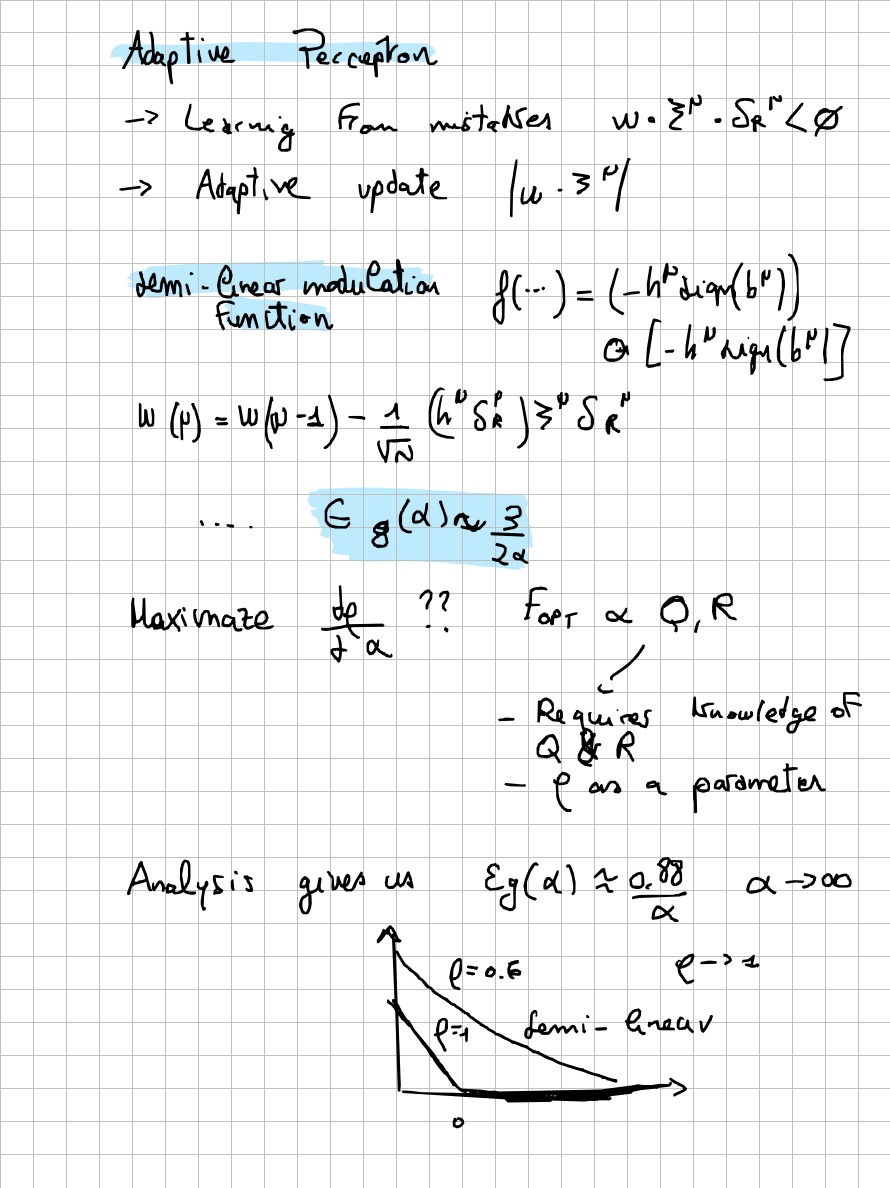 Adaptive Perceptron
-> Learning from mistakes w · ξ^μ · S_R^μ < 0
-> Adaptive update |w · ξ^μ|
semi-linear modulation f(...) = (-h^μ sign(b^μ))
function Θ[-h^μ sign(b^μ)]
w(μ) = w(μ-1) - 1/√N (h^μ S_R^μ) ξ^μ S_R^μ
.... ε_g(α) ~ 3/2α
Maximaze dρ/dα ?? F_OPT ∝ Q, R
- Requires knowledge of
Q & R
- ρ as a parameter
Analysis gives us εg(α) ≈ 0.88/α α → ∞
ρ = 0.6 ρ -> 1
ρ=1 semi-linear
0